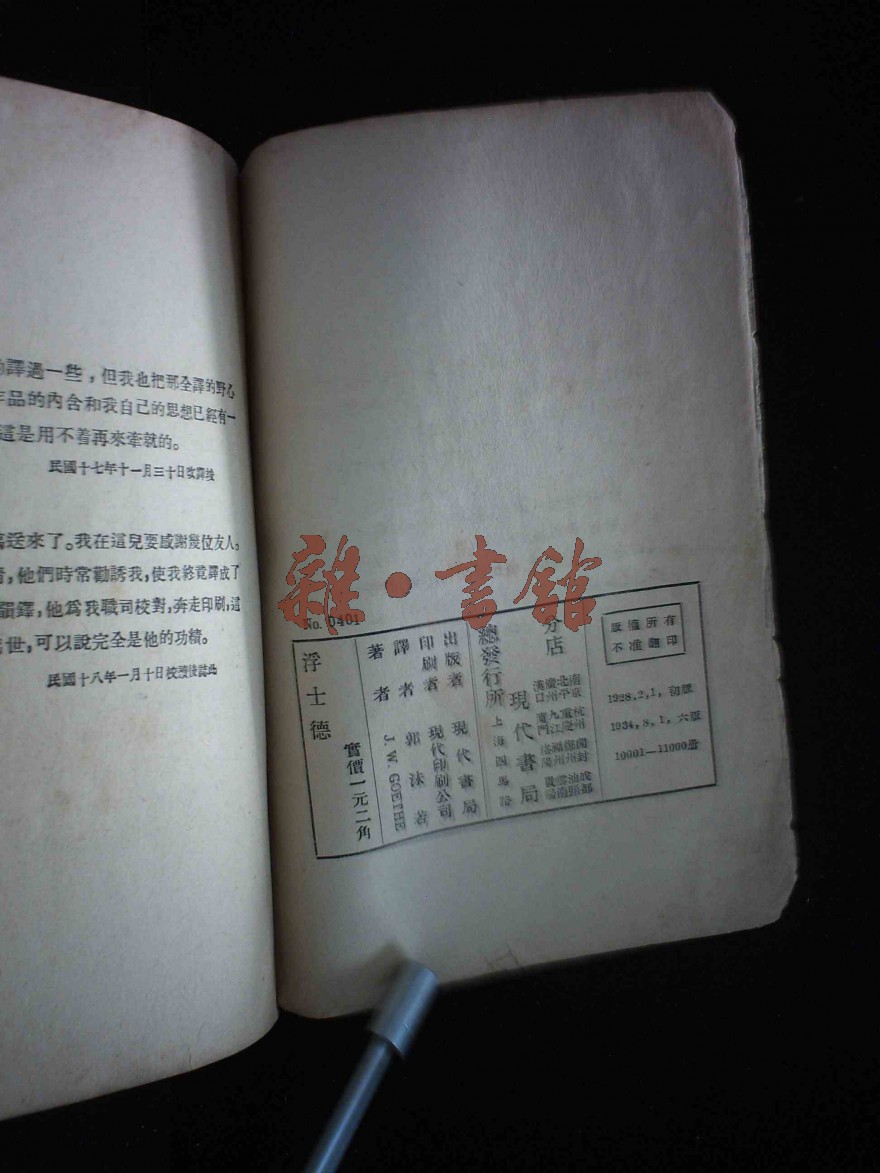 譯過一些，但我也把那全譯的野心
品的內含和我自己的思想已經有一
這是用不着再來牽就的。
民國十七年十一月三十日改譯竣
送來了。我在這兒要感謝幾位友人。
，他們時常勸誘我，使我終竟譯成了
韻鐸，他爲我職司校對，奔走印刷，這
世，可以說完全是他的功績。
民國十八年一月十日校讀後誌此
雜·書館
No. 0401
版權所有
不准翻印
1928,2,1, 初版
1934,8,1, 六版
10001—11000册
分店
南京
北平
廣州
漢口
杭州
重慶
九江
廈門
開封
福州
洛陽
成都
汕頭
雲南
總發行所
上海四馬路
現代書局
出版者 現代書局
印刷者 現代印刷公司
譯者 郭沫若
著者 J. W. GOETHE
實價一元二角
浮士德